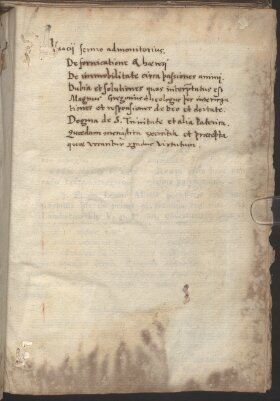 Isacii sermo admonitorius.
De fornicatione & heresi
De immobilitate circa passiones animi
Dubia et solutiones quas interpretatus est
Magnus Gregorius theologus per interroga
tiones et responsiones de deo et deitate.
Dogma de S. Trinitate et alia Paterica.
Quaedam et praecepta
quae vocantur gradus Virtutum